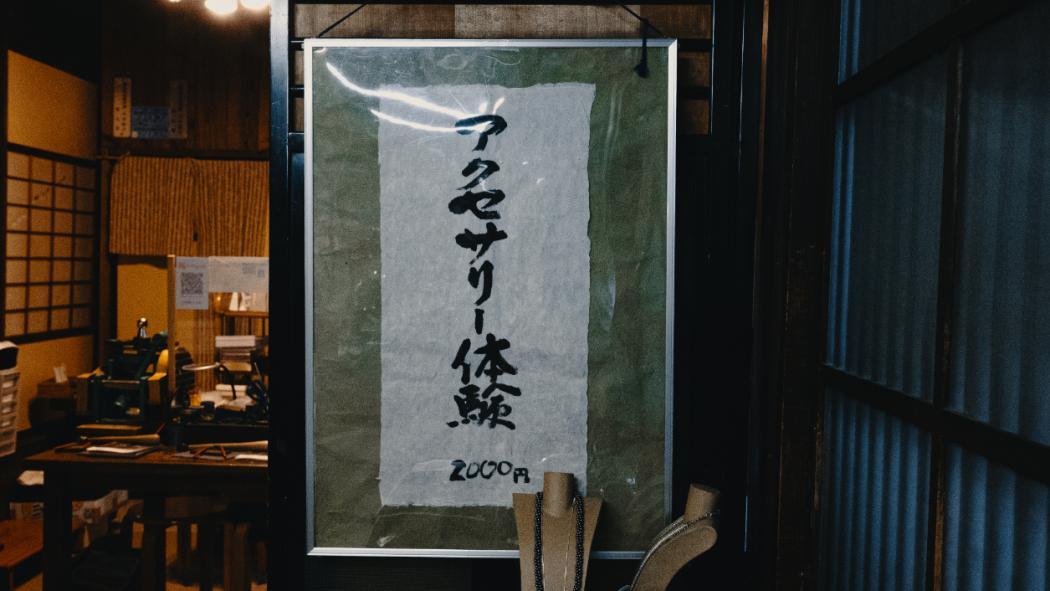 アクセサリー体験
2000円